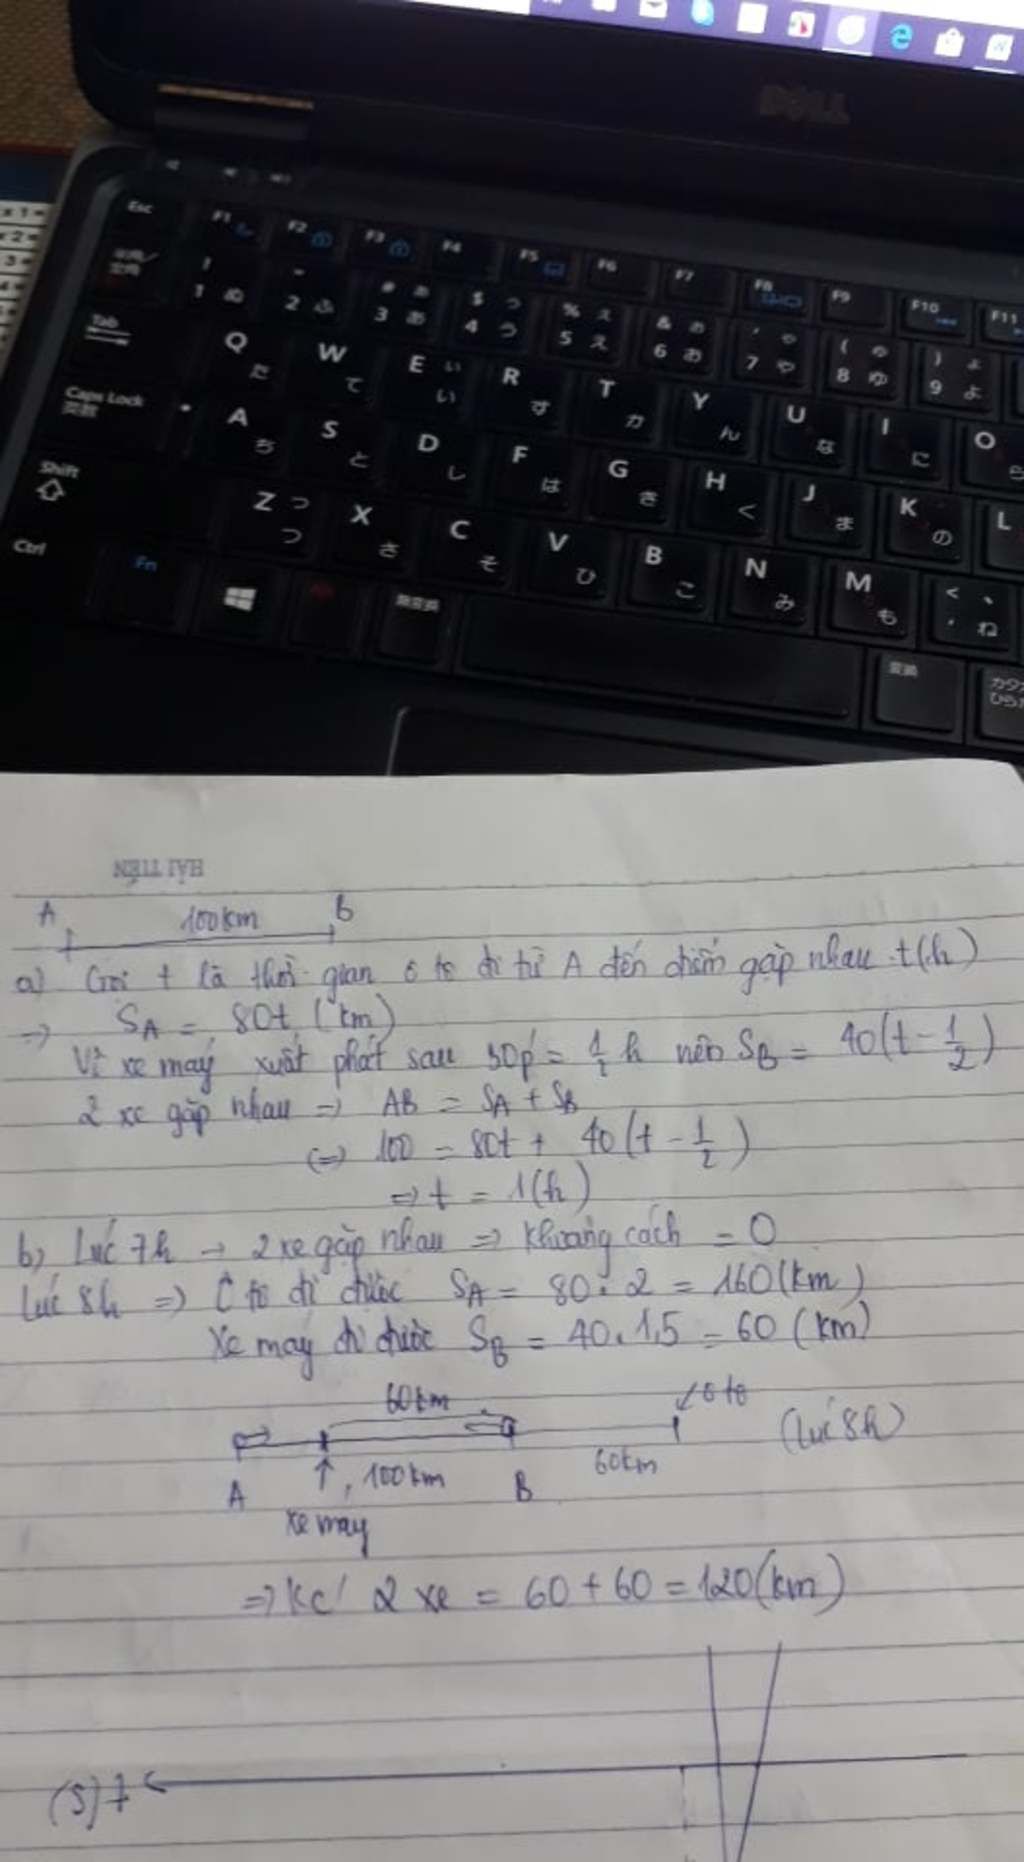 DELL
Esc F1 F2 F3 F4 F5 F6 F7 F8 F9 F10 F11
半角/全角 ! 1 ぬ " 2 ふ # ぁ 3 あ $ ぅ 4 う % ぇ 5 え & ぉ 6 お ' ゃ 7 や ( ゅ 8 ゆ ) ょ 9 よ
Tab Q た W て E ぃ い R す T か Y ん U な I に O ら
Caps Lock A ち S と D し F は G き H く J ま K の L
Shift Z っ つ X さ C そ V ひ B こ N み M も < 、 , ね
Ctrl Fn 無変換 変換 カタカ ひら
HẢI TIẾN
A 100km B
a) Gọi t là thời gian ô tô đi từ A đến điểm gặp nhau t(h)
=> SA = 80t (km)
Vì xe máy xuất phát sau 30p' = 1/2 h nên SB = 40(t - 1/2)
2 xe gặp nhau => AB = SA + SB
<=> 100 = 80t + 40(t - 1/2)
=> t = 1(h)
b) Lúc 7h → 2 xe gặp nhau => Khoảng cách = 0
Lúc 8h => Ô tô đi được SA = 80.2 = 160(km)
Xe máy đi được SB = 40.1,5 = 60 (km)
60km ô tô
(lúc 8h)
A 100km B 60km
xe máy
=> Kc' 2 xe = 60 + 60 = 120(km)
(s) t